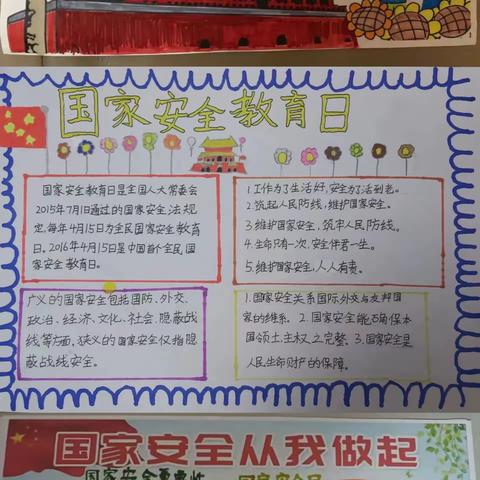 国家安全教育日
国家安全教育日是全国人大常委会
2015年7月1日通过的国家安全法规
定,每年4月15日为全民国家安全教育
日。2016年4月15日是中国首个全民国
家安全教育日。
1.工作为了生活好,安全为了活到老。
2.筑起人民防线,维护国家安全。
3.维护国家安全,筑牢人民防线。
4.生命只有一次,安全伴君一生。
5.维护国家安全,人人有责。
广义的国家安全包括国防、外交、
政治、经济、文化、社会、隐蔽战
线等方面,狭义的国家安全仅指隐
蔽战线安全。
1.国家安全关系国际外交与友邦国
家的维系。2.国家安全能确保本
国领土主权之完整。3.国家安全是
人民生命财产的保障。
国家安全从我做起
国家安全重要性